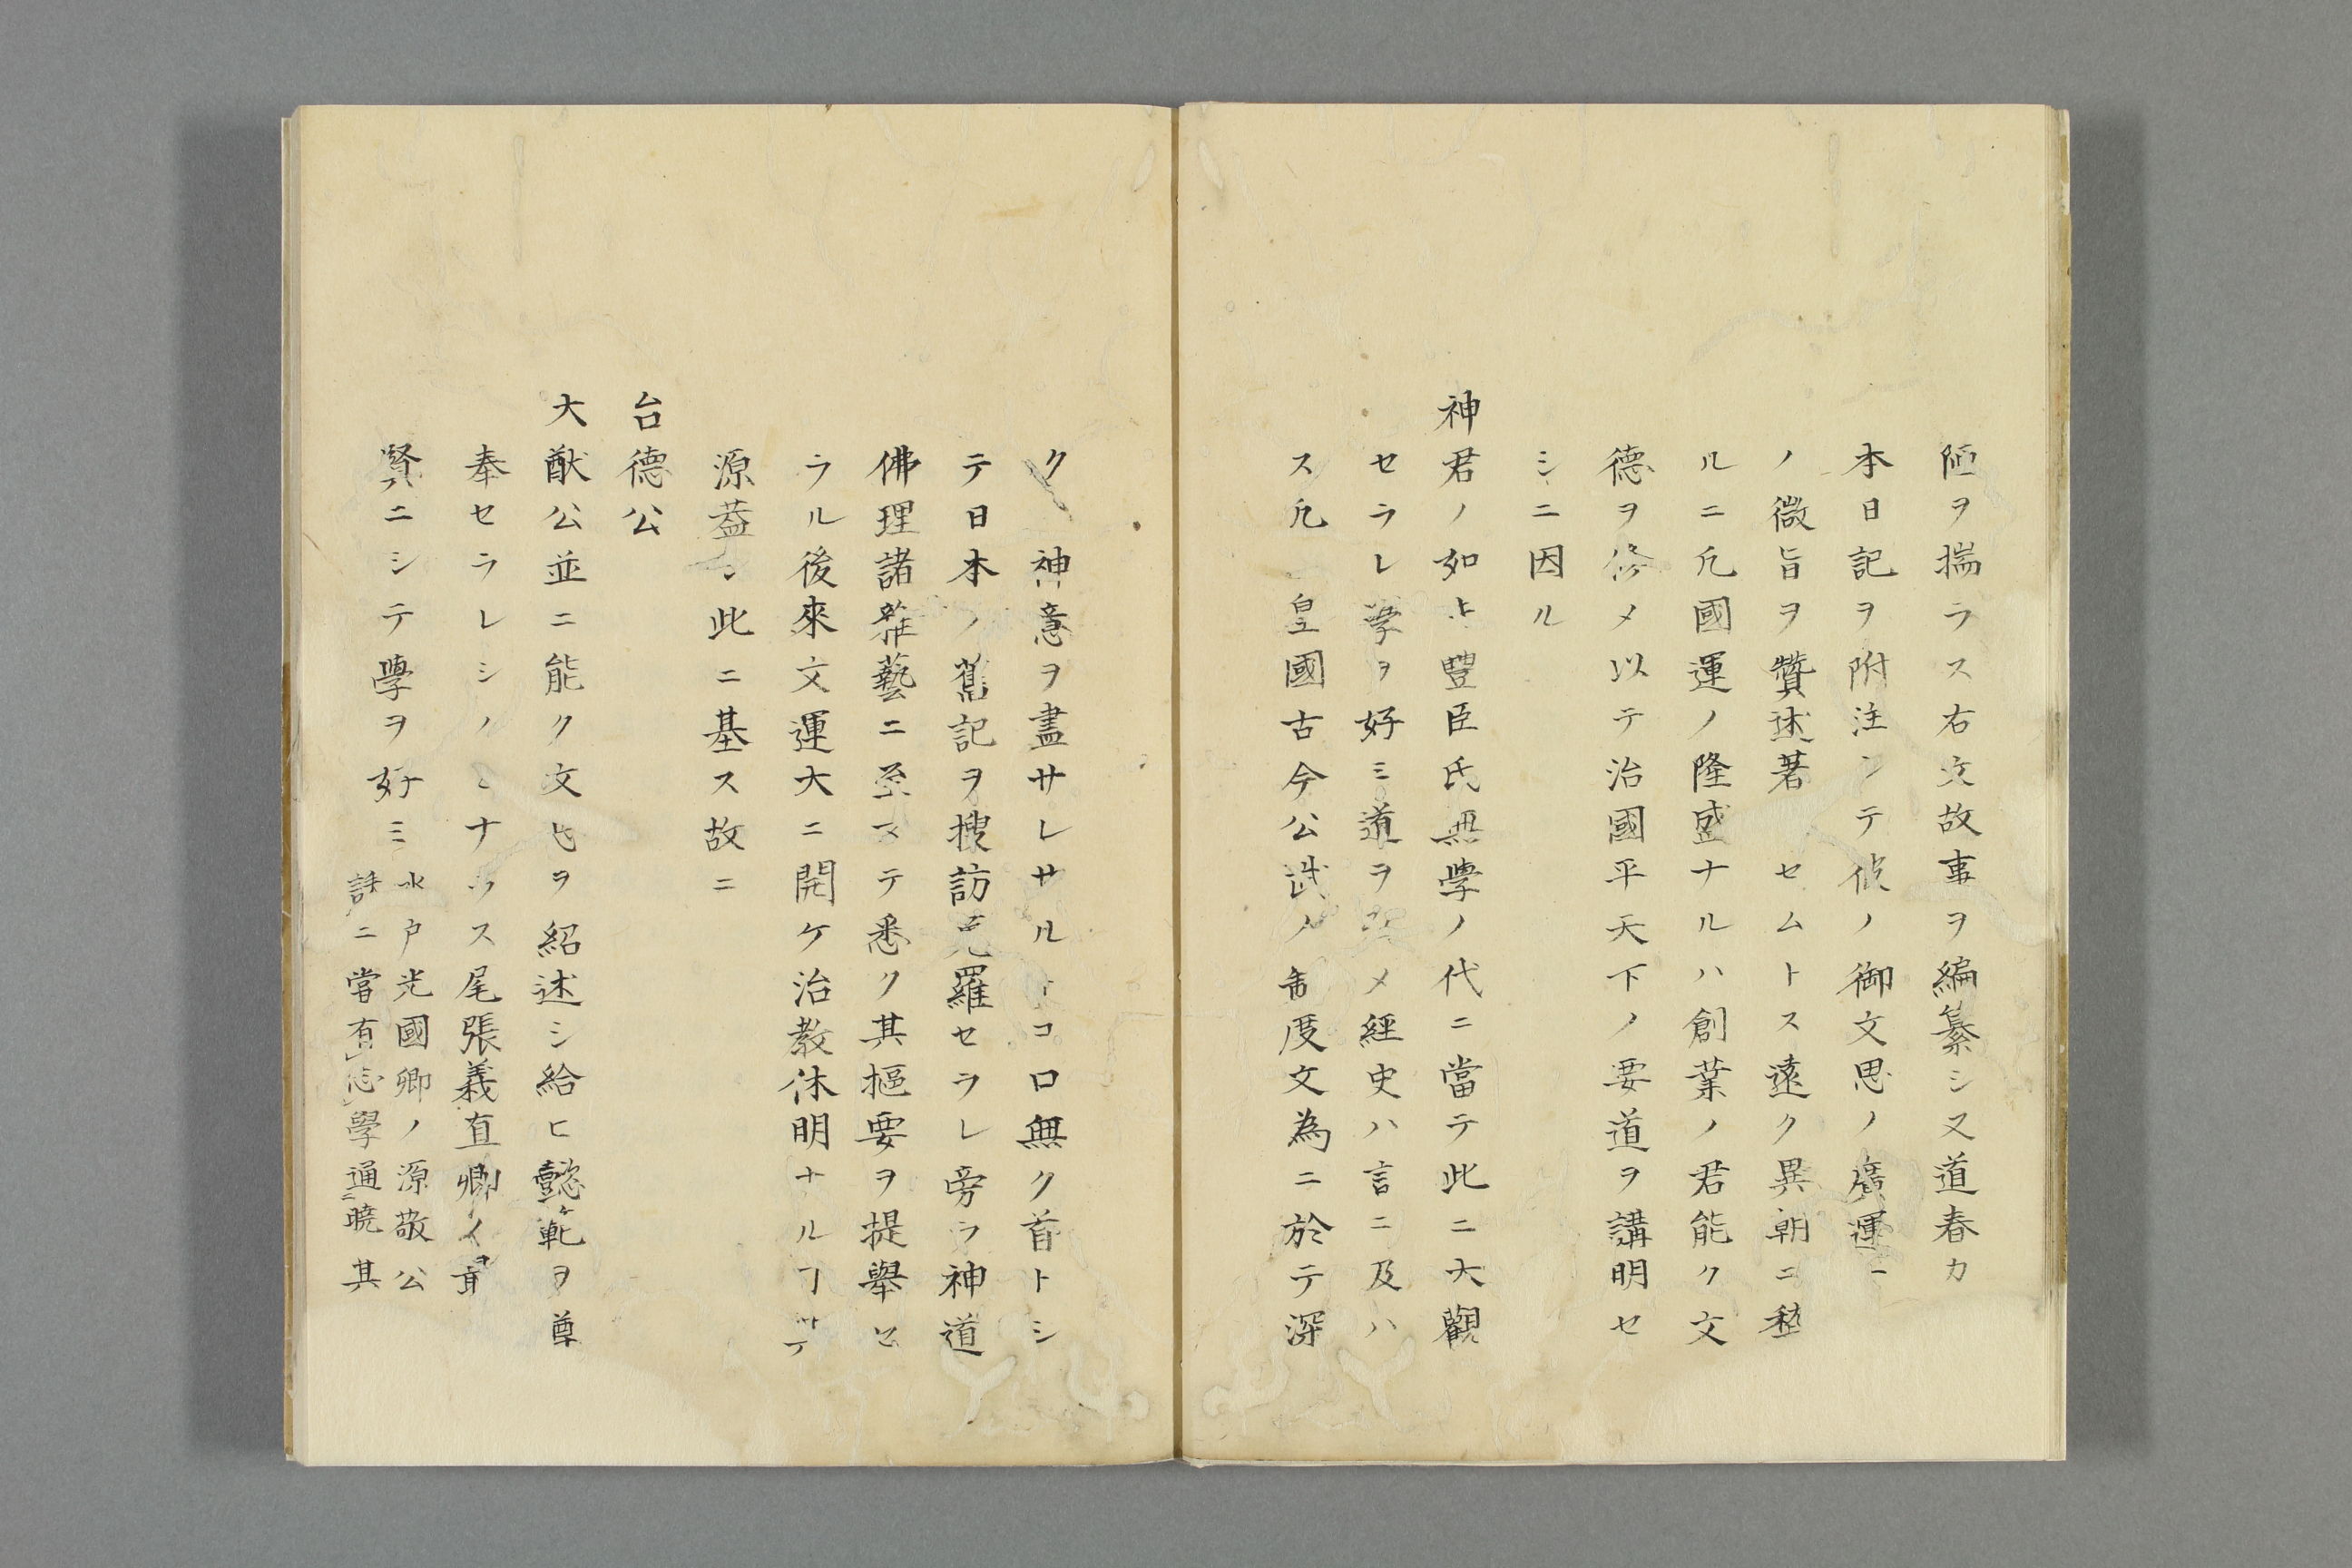 陋ヲ揣ラス右文故事ヲ編纂シ又道春カ
本日記ヲ附注シテ偵ノ御文思ノ廣運
ノ微旨ヲ贊述著セムトス遠ク異朝ニ稽
ルニ凢國運ノ隆盛ナルハ創業ノ君能ク文
德ヲ修メ以テ治國平天下ノ要道ヲ講明セ
シニ因ル
神君ノ如キ豐臣氏無學ノ代ニ當テ此ニ大觀
セラレ學ヲ好ミ道ヲ メ經史ハ言ニ及ハ
ス凢 皇國古今公武ノ制度文為ニ於テ深
ク 神意ヲ盡サレサルトコロ無ク首トシ
テ日本ノ舊記ヲ搜訪羅セラレ旁ラ神道
佛理諸雜藝ニ至マテ悉ク其樞要ヲ提舉セ
ラル後來文運大ニ開ケ治教休明ナルヿヲ
源葢シ此ニ基ス故ニ
台德公
大猷公並ニ能ク文ヲ紹述シ給ヒ懿範ヲ尊
奉セラレシノミナラス尾張義直卿ノ
賢ニシテ學ヲ好ミ 水戶光國卿ノ源敬公
誄ニ當有志學通曉其